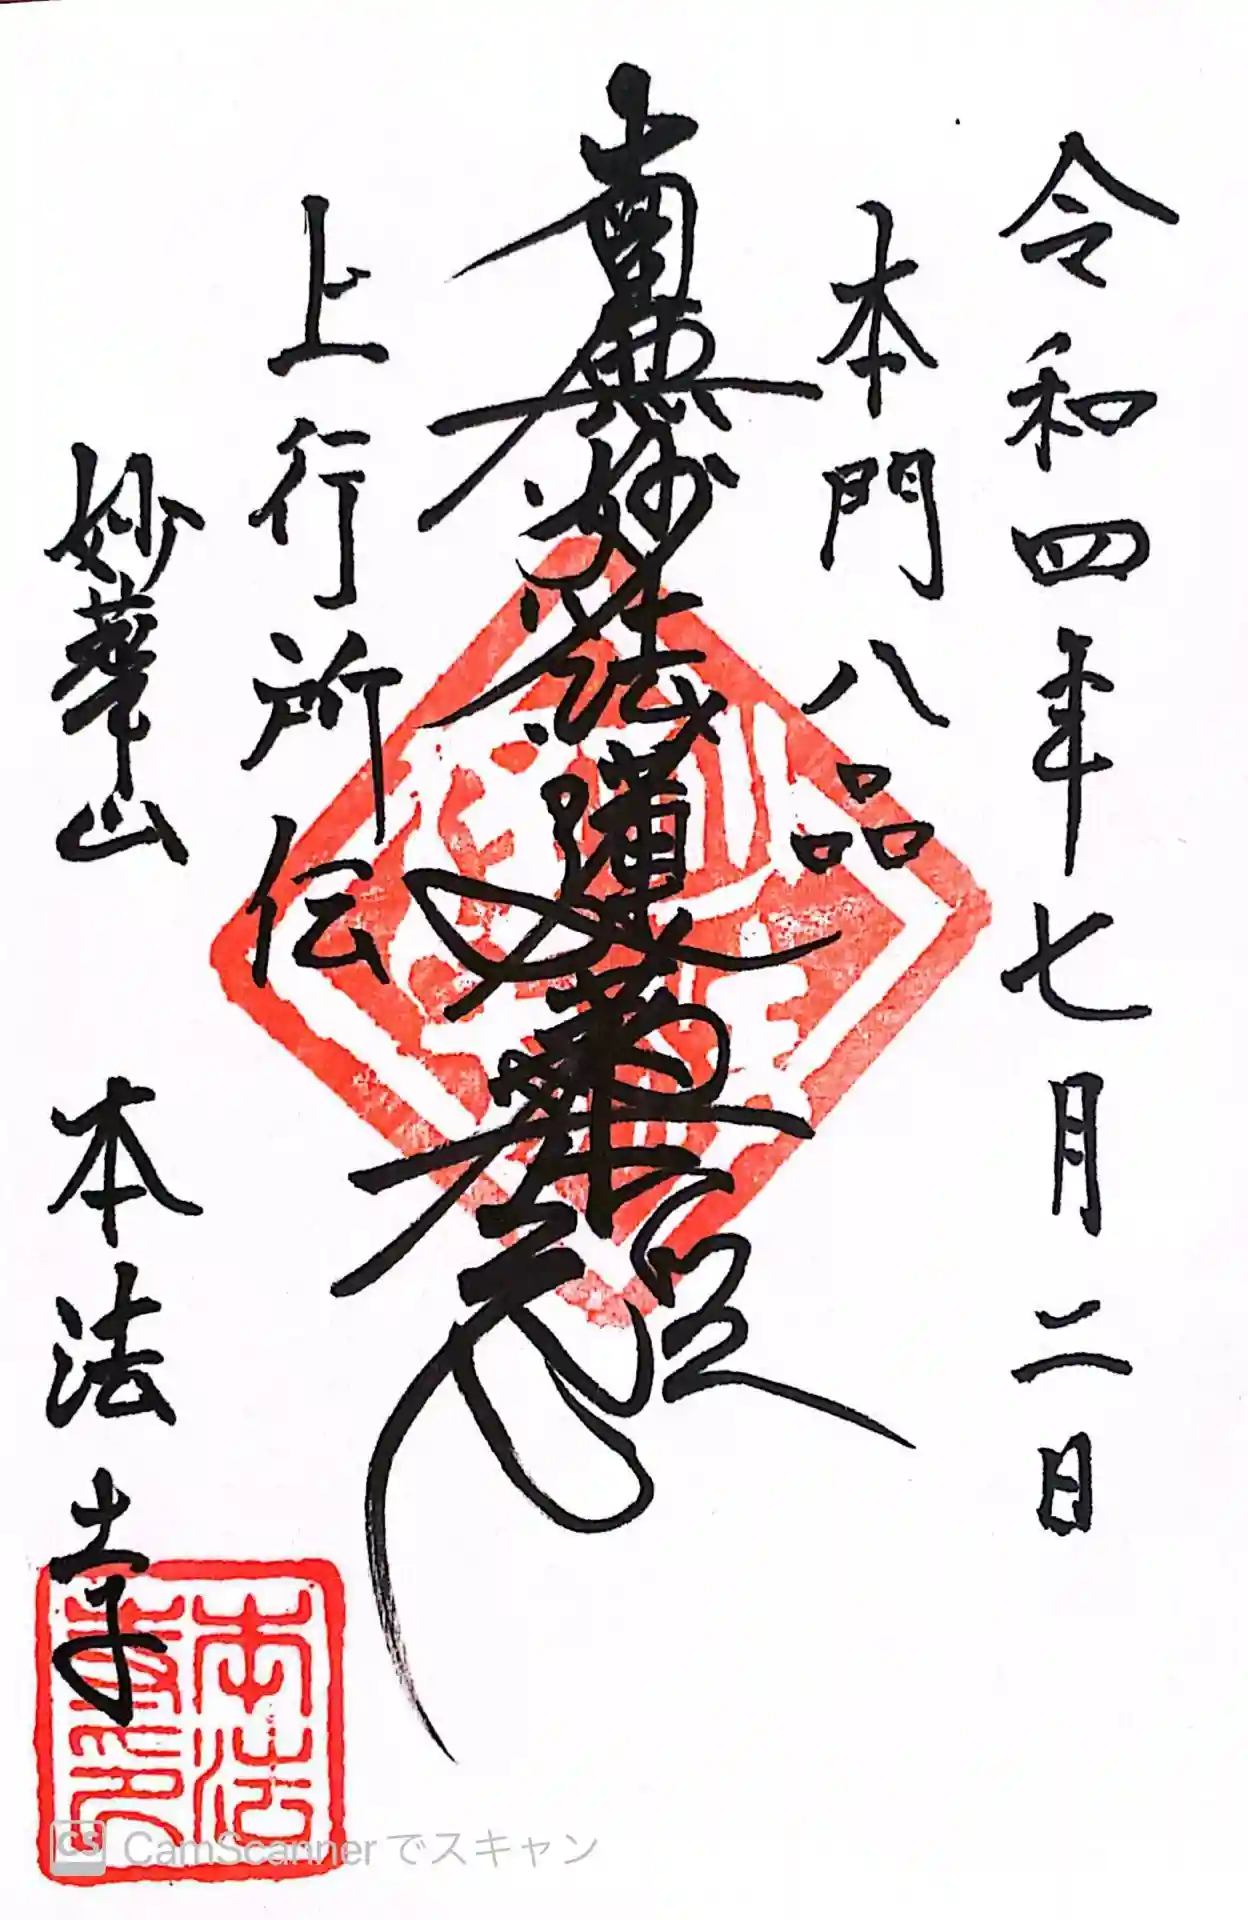 令和四年七月二日
本門八品
南無妙法蓮華経
上行所伝
妙華山 本法寺
本法
寺印
CS CamScannerでスキャン